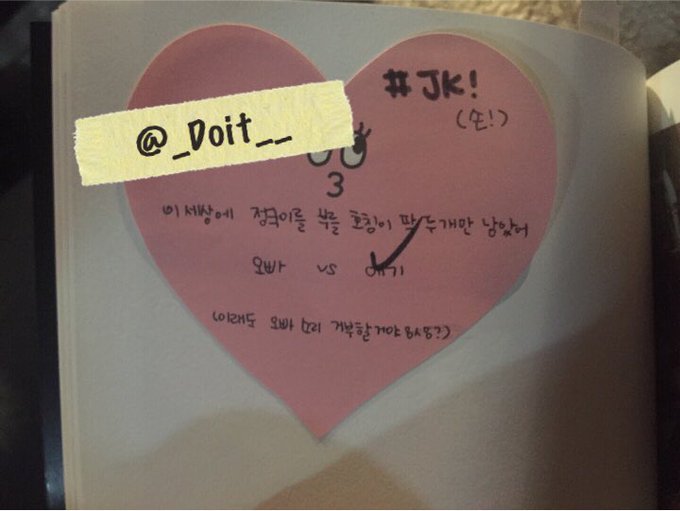 #JK!
@_Doit__
(손!)
3
이 세상에 정국이를 부를 호칭이 딱 두개만 남았어
오빠 vs 애기
(이래도 오빠 소리 거부할거야 8ㅅ8?)